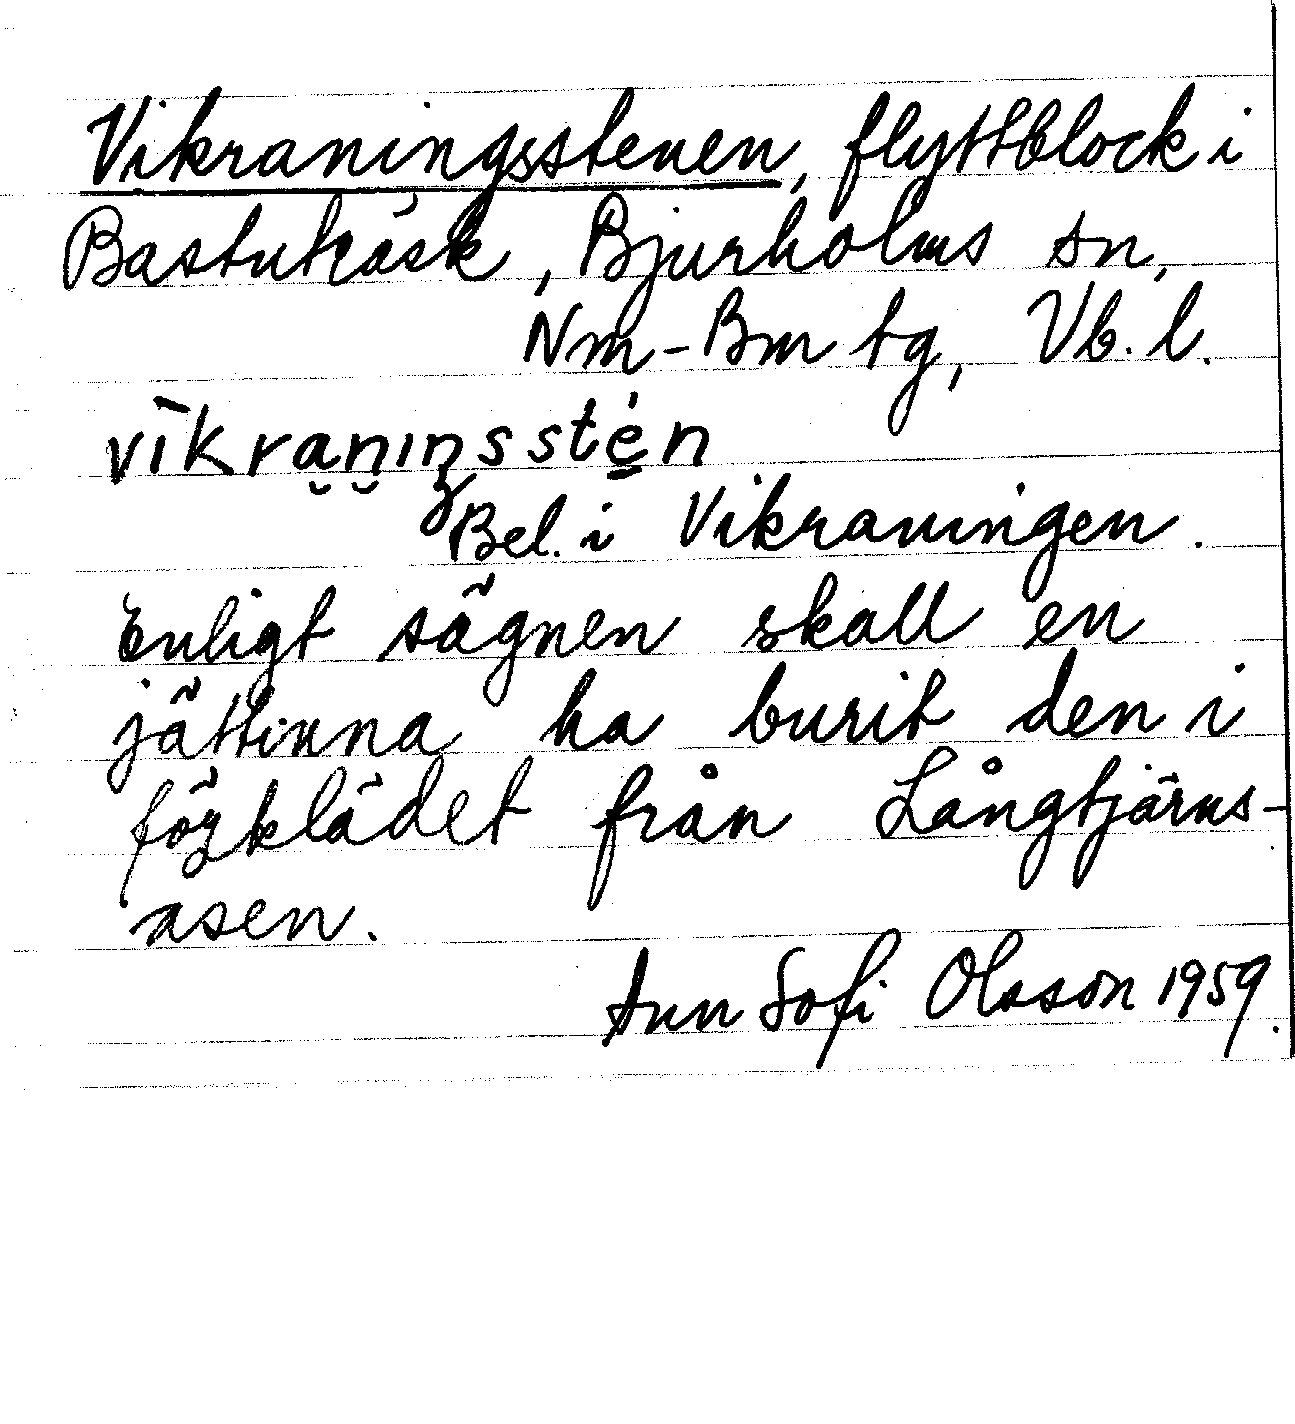 Vikraningsstenen, flyttblock i
Bastuträsk, Bjurholms sn,
Nm-Bm tg, Vb. l.
Bel. i Vikraningen.
Enligt sägnen skall en
jättinna ha burit den i
förklädet från Långtjärns-
åsen.
Ann Sofi Olsson 1959.